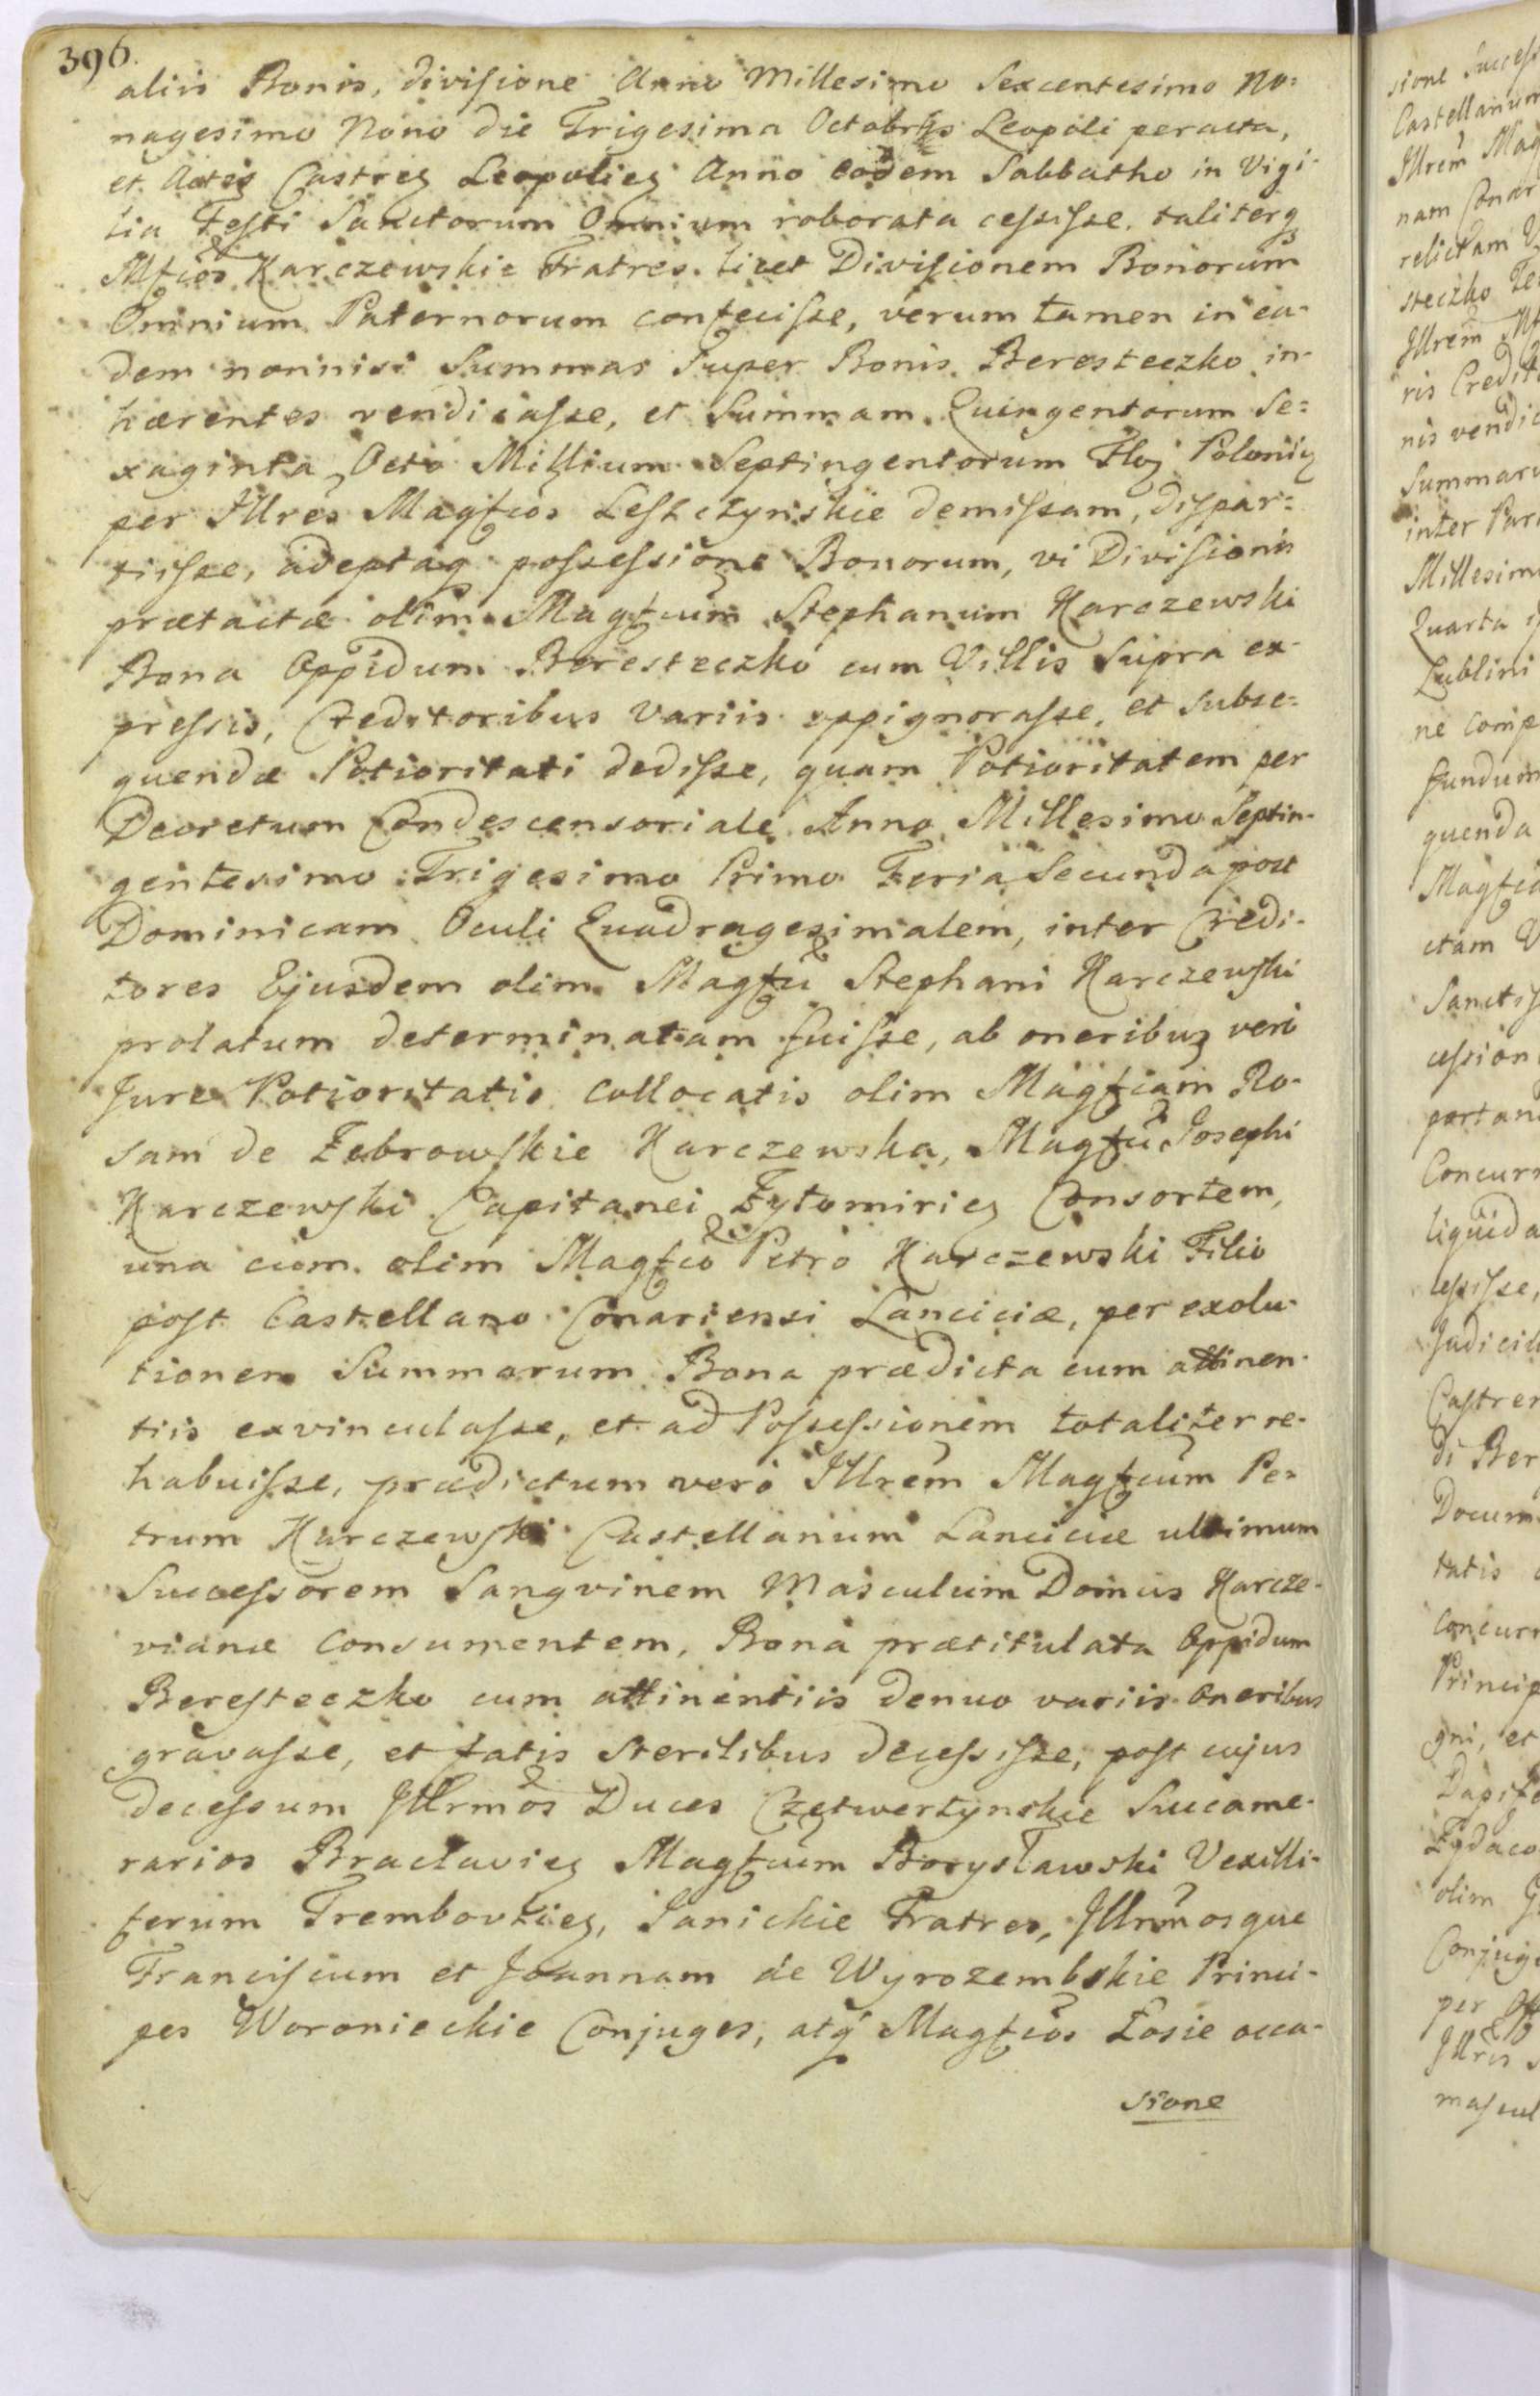 396.
aliis Bonis, divisione Anno Millesimo Sexcentesimo No=
nagesimo Nono die Trigesima Octobris Leopoli peracta,
et Actis Castreꝫ Leopolieꝫ Anno eodem Sabbatho in Vigi-
lia Festi Sanctorum Omnium roborata cessisse, taliterq
Mfcos Karczewskie Fratres, licet Divisionem Bonorum
Omnium Paternorum confecisse, verum tamen in ea-
dem nonnisi Summas super Bonis Beresteczko in-
hærentes vendicasse, et Summam Quingentorum Se=
xaginta Octo Millium Septingentorum Floꝫ Polonieꝫ
per Illres Magfcos Leszczynskie demissam, dispar=
tiisse, adeptaq possessione Bonorum, vi Divisionis
prætactæ olim Magfcum Stephanum Karczewski
Bona Oppidum Beresteczko cum Villis supra ex-
pressis, Creditoribus variis oppignorasse, et subse=
quendæ Potioritati dedisse, quam Potioritatem per
Decretum Condescensoriale Anno Millesimo Septin-
gentesimo Trigesimo Primo Feria Secunda post
Dominicam Oculi Quadragesimalem, inter Credi-
tores Ejusdem olim Magfci Stephani Karczewski
prolatum determinatam fuisse, ab oneribus vero
Jure Potioritatis collocatis olim Magfcam Ro-
sam de Zebrowskie Karczewska, Magfci Josephi
Karczewski Capitanei Zytomirieꝫ Consortem,
una cum olim Magfco Petro Karczewski Filio
post Castellano Conariensi Lanciciæ, per exolu-
tionem Summarum Bona prædicta cum attinen-
tiis exvinculasse, et ad Possessionem totaliter re-
habuisse, prædictum vero Illrem Magfcum Pe=
trum Karczewski Castellanum Lanciciæ ultimum
Successorem Sangvinem Masculum Domus Karcze-
vianæ Consumentem, Bona prætitulata Oppidum
Beresteczko cum attinentiis denuo variis oneribus
gravasse, et fatis sterilibus decessisse, post cujus
decessum Illrmos Duces Czetwertynskie Succame-
rarios Braclavieꝫ Magfcum Boryslawski Vexilli-
ferum Trembovlieꝫ, Janickie Fratres, Illrmosque
Franciscum et Joannam de Wyrozembskie Princi-
pes Woronieckie Conjuges, atq Magfcos Łosie occa-
sione
sione Success
Castellanum
Illrem Mag
nam Conar
relictam
steczko
Illrem
ris Credit
nis vendic
Summaru
inter Par
Millesimo
Quarta
Lublini
ne comp
fundum
quenda
Magfco
ctam V
Sanctis
cession
portand
Concurr
liquida
cessisse,
Judiciu
Castren
di Ber
Docum
tatis
concurr
Princip
gni, et
Dapife
Zydaco
olim
Conjuge
per
Illris
mascul